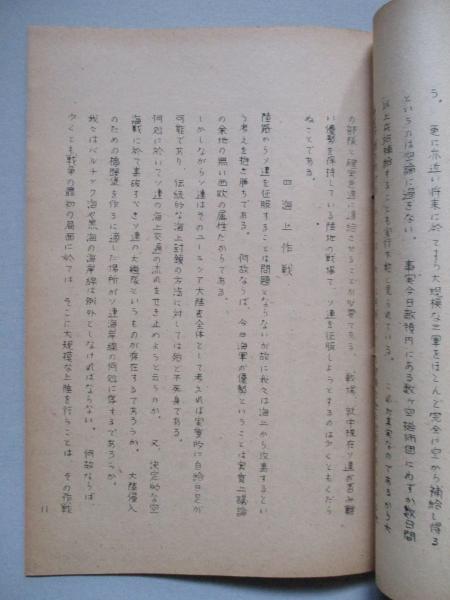 う。 更に亦近い将来に於てすら大規模な三軍をほとんど完全に空から補給し得る
というのは空論に過ぎない。 事実今日敵境内にある数ヶ空挺師団にわずか数日間
の部隊と確実急速に連絡させることが必要である
い優勢を保持している陸地の戦場で、ソ連を征服しようとするのは少くともくだら
ぬことである。
四 海上作戦
陸路からソ連を征服することは問題とならないが故に我々は海上から攻撃するとい
う考えを抱き勝ちである。 何故ならば、今日海軍が優勢ということは実質上議論
の余地の無い西欧の属性だからである。
しかしながらソ連はそのユーラシア大陸を全体として考えれば実質的に自給自足が
可能であり、伝統的な海上封鎖の方法に対しては殆ど不死身である。
何処に於いてソ連の海上交通の流れをせき止めようと云うのか。 又、決定的な空
海戦に於て撃破すべきソ連の大艦隊というものが存在するであろうか。 大陸侵入
のための橋頭堡を作るに適した場所がソ連海岸線の何処に存するであろうか。
我々はバルチック海や黒海の海岸線は例外としなければならない。 何故ならば
少くとも戦争の最初の局面に於ては、そこに大規模な上陸を行うことは、その作戦
11